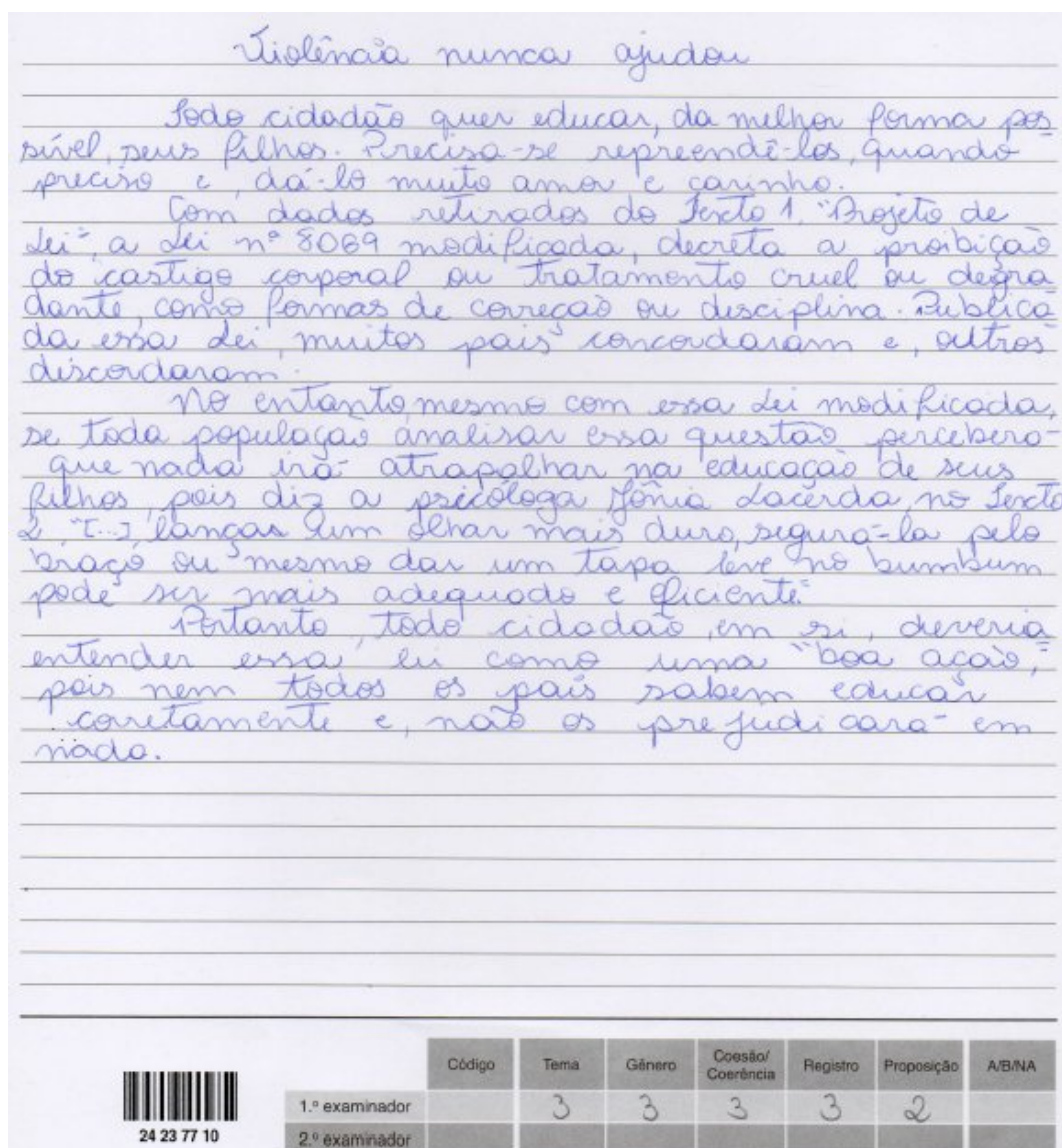 Violência nunca ajudou
Todo cidadão quer educar, da melhor forma pos
sível, seus filhos. Precisa-se repreendê-los, quando
preciso e, dá-lo muito amor e carinho.
Com dados retirados do Texto 1, "Projeto de
Lei", a Lei nº 8069 modificada, decreta a proibição
do castigo corporal ou tratamento cruel ou degra
dante, como formas de correção ou disciplina. Publica
da essa Lei, muitos pais concordaram e, outros
discordaram.
No entanto, mesmo com essa Lei modificada,
se toda população analisar essa questão perceberá
que nada irá atrapalhar na educação de seus
filhos, pois diz a psicóloga Tônia Lacerda, no Texto
2, "[...] lançar um olhar mais duro, segurá-la pelo
braço ou mesmo dar um tapa leve no bumbum
pode ser mais adequado e eficiente."
Portanto, todo cidadão, em si, deveria
entender essa lei como uma "boa ação",
pois nem todos os pais sabem educar
corretamente e, não os prejudicará em
nada.
Código Tema Gênero Coesão/Coerência Registro Proposição A/B/NA
1.º examinador 3 3 3 3 2
24 23 77 10
2.º examinador